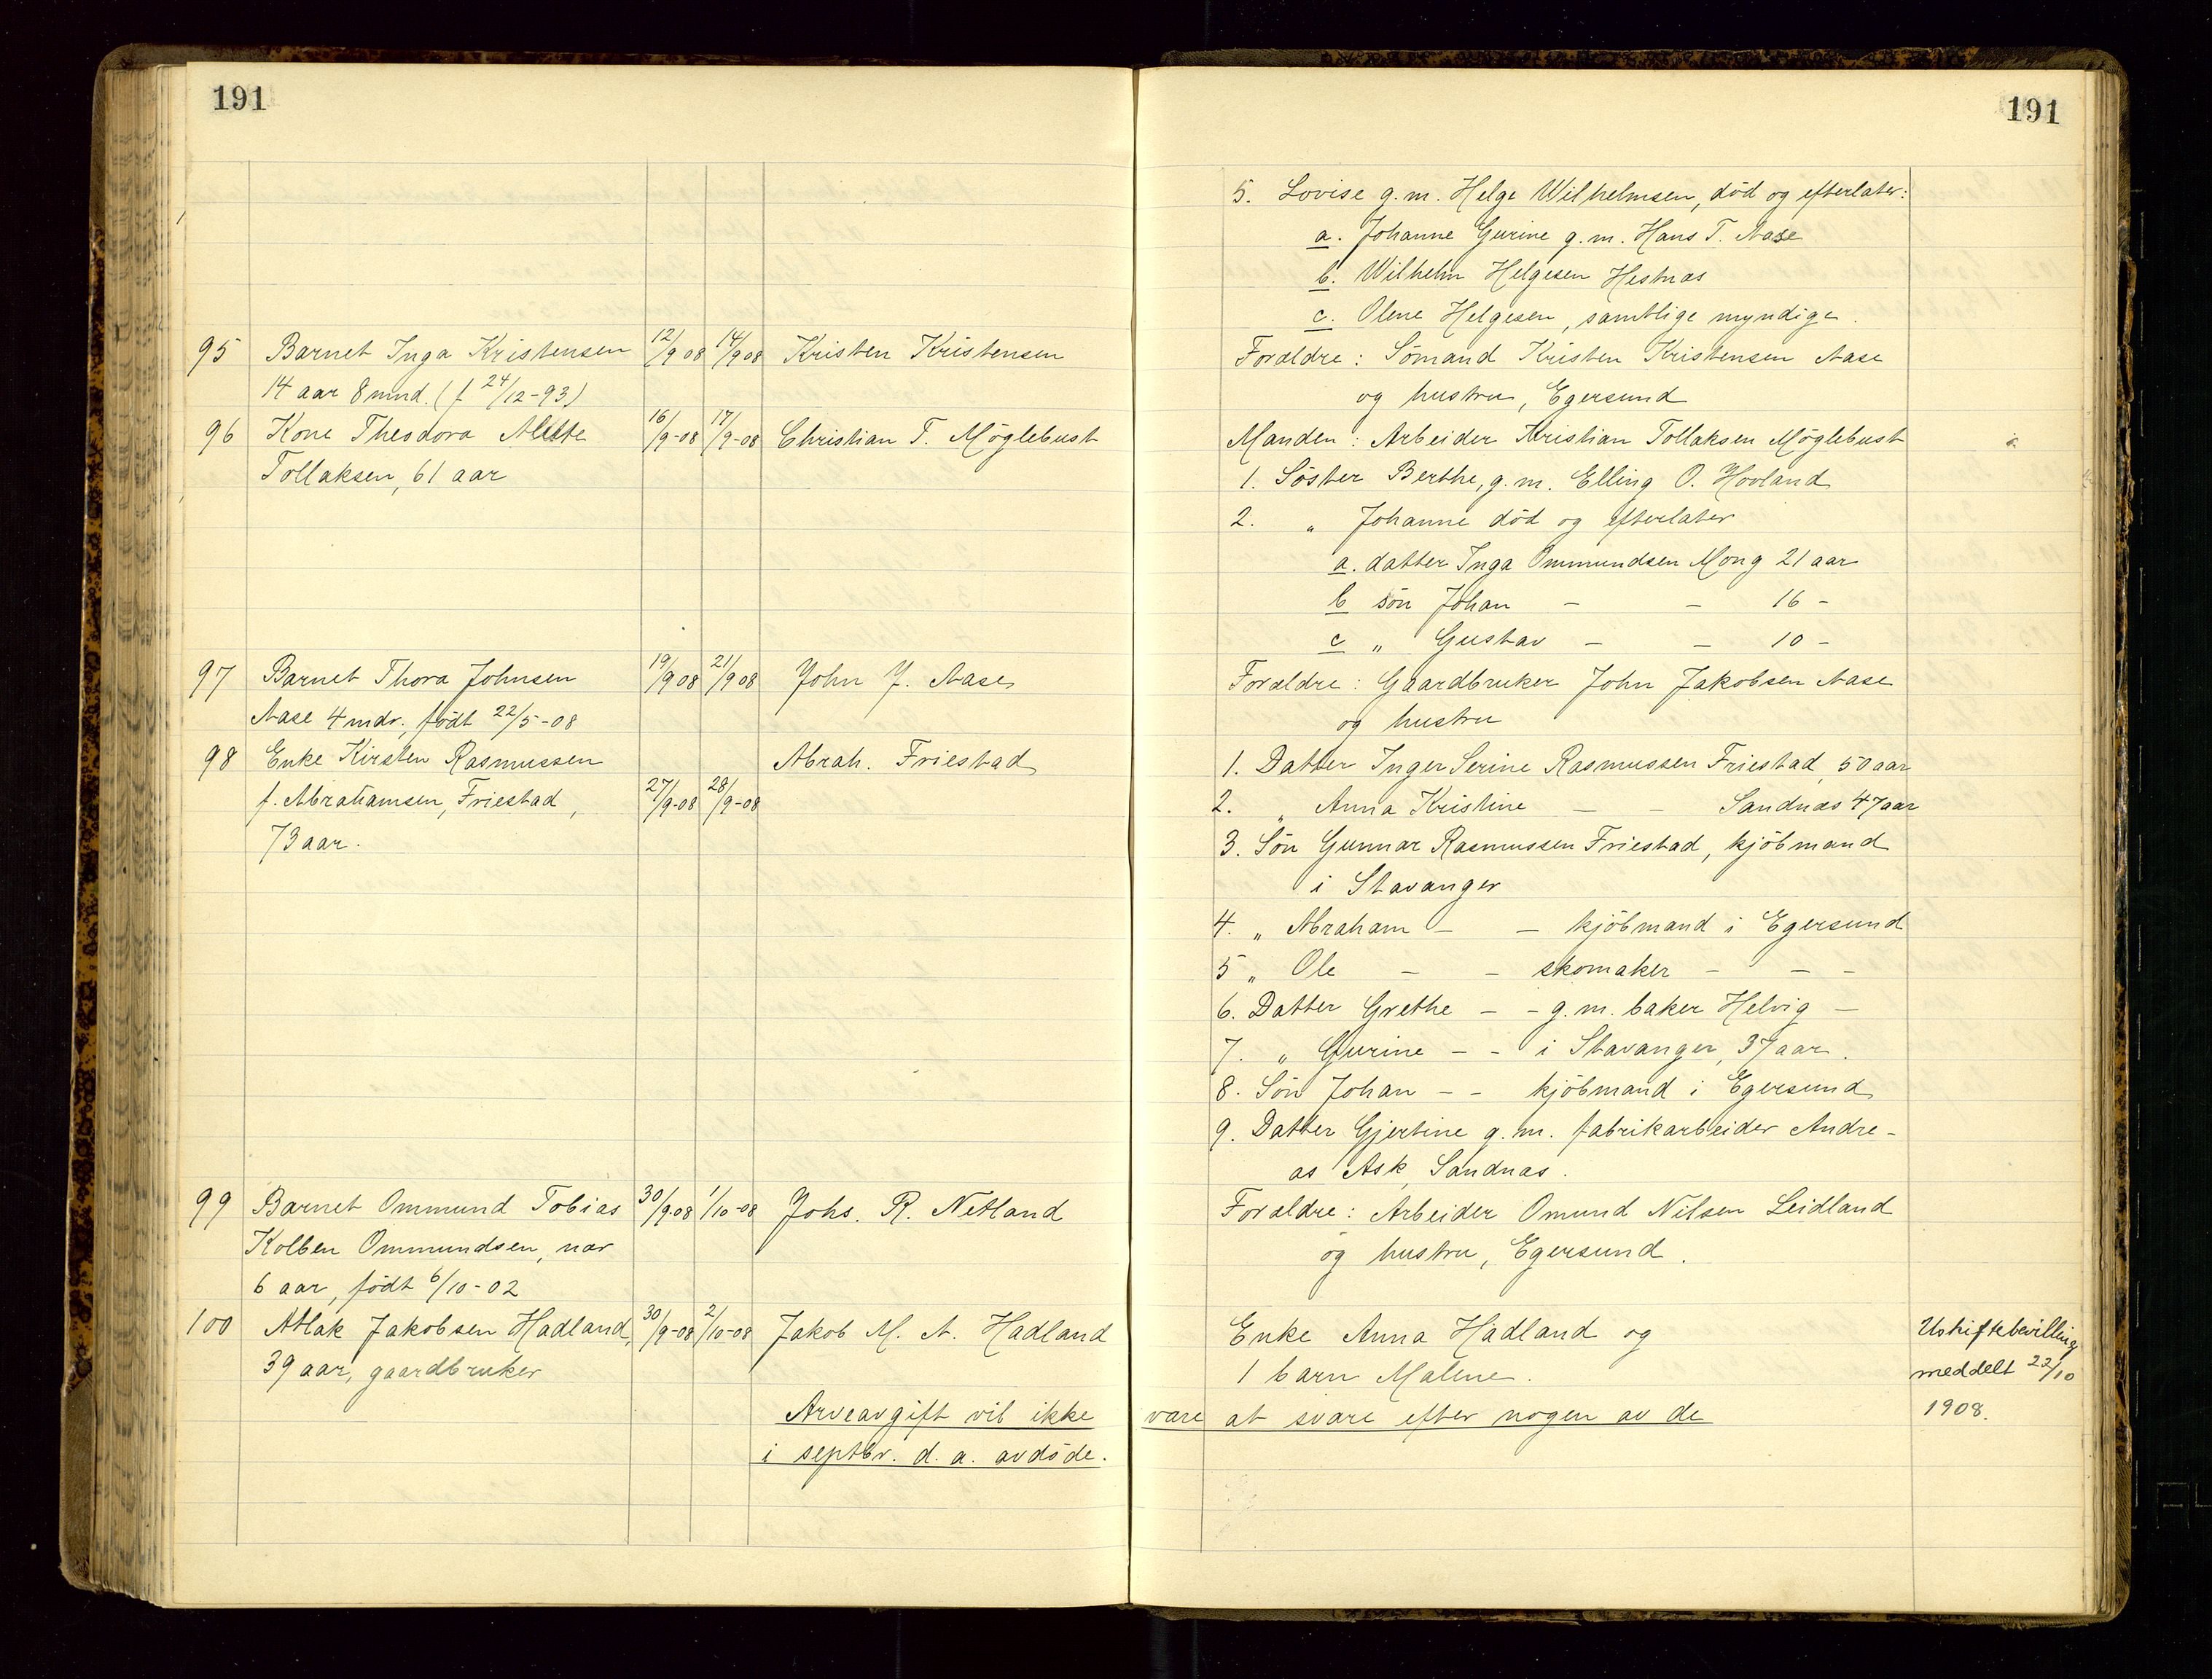 191
191
5. Lovise g.m. Helge Wilhelmsen, död og efterlater:
a. Johanne Gurine g.m. Hans T. Aase
b. Wilhelm Helgesen Hestnæs
c. Olene Helgesen, samtlige myndige.
95 Barnet Inga Kristensen 12/9 08 14/9 08 Kristen Kristensen Forældre: Sömand Kristen Kristensen Aase
14 aar 8 mnd. (f 24/12-93) og hustru, Egersund
96 Kone Theodora Alette 16/9-08 17/9-08 Christian T. Möglebust Manden: Arbeider Kristian Tollaksen Möglebust
Tollaksen, 61 aar 1. Söster Berthe, g.m. Elling O. Hovland
2. „ Johanne död og efterlater
a. datter Inga Ommundsen Mong 21 aar
b sön Johan - - 16 -
c „ Gustav - - 10 -
97 Barnet Thora Johnsen 19/9 08 21/9 08 John J. Aase Forældre: Gaardbruker John Jakobsen Aase
Aase 4 mdr., födt 22/5-08 og hustru
98 Enke Kirsten Rasmussen Abrah. Friestad 1. Datter Inger Serine Rasmussen Friestad, 50 aar
f. Abrahamsen, Friestad, 27/9-08 28/9-08 2. „ Anna Kristine - - Sandnæs 47 aar
73 aar. 3. Sön Gunnar Rasmussen Friestad, kjöbmand
i Stavanger
4. „ Abraham - - kjöbmand i Egersund
5 „ Ole - - skomaker - - -
6. Datter Grethe - - g.m. baker Helvig -
7. „ Gurine - - i Stavanger, 37 aar.
8. Sön Johan - - kjöbmand i Egersund
9. Datter Gjertine g.m. fabrikarbeider Andre-
as Ask, Sandnæs.
99 Barnet Ommund Tobias 30/9.08 1/10-08 Johs. R. Netland Forældre: Arbeider Omund Nilsen Leidland
Kolben Ommundsen, nær og hustru, Egersund.
6 aar, födt 6/10-02
100 Atlak Jakobsen Hadland, 30/9-08 2/10-08 Jakob M. A. Hadland Enke Anna Hadland og Uskiftebevilling
39 aar, gaardbruker 1 barn Malene. meddelt 22/10
Arveavgift vil ikke være at svare efter nogen av de 1908.
i septbr. d. a. avdöde.